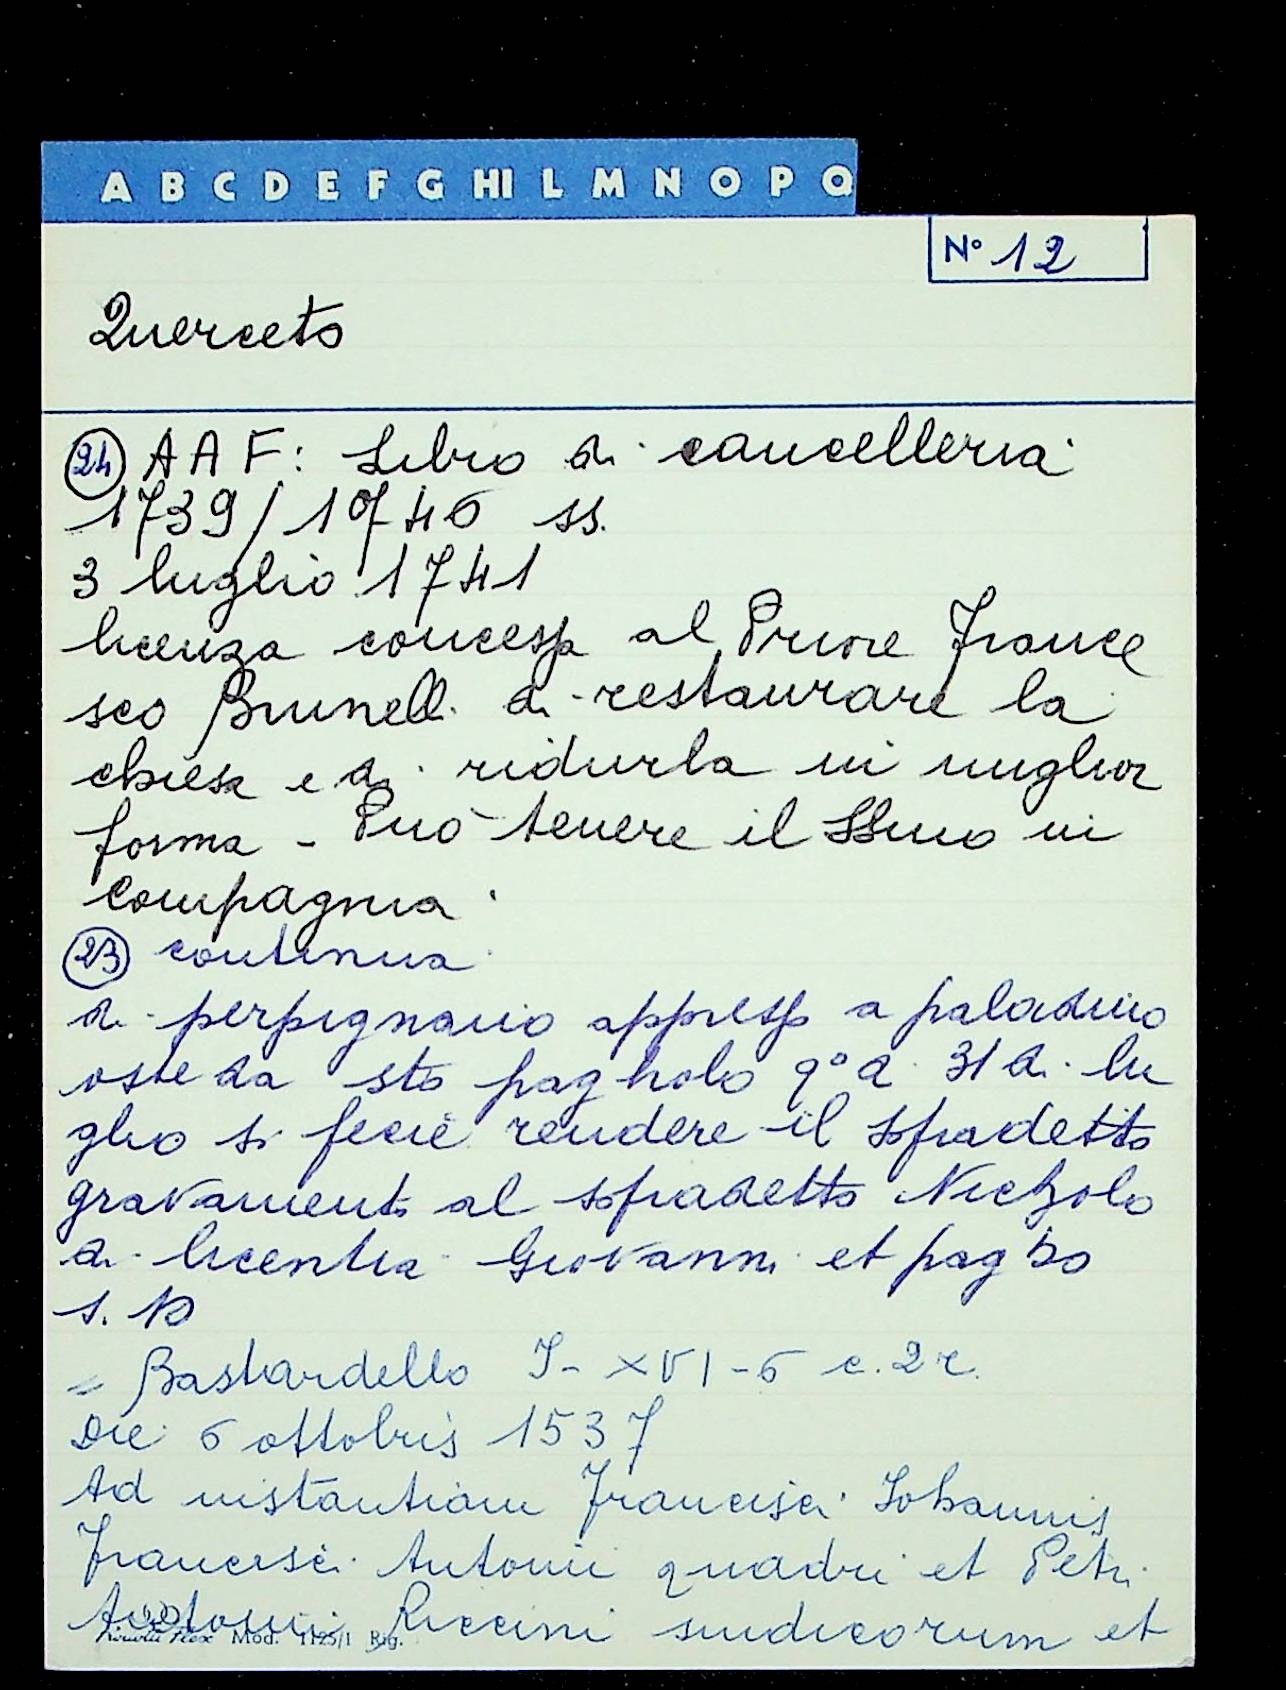 A B C D E F G HI L M N O P Q
N° 12
Querceto
24 A A F: Libro di cancelleria
1739/1746 ss.
3 luglio 1741
licenza concessa al Priore France
sco Brunelli di restaurare la
chiesa e di ridurla in miglior
forma - Può tenere il SSmo in
compagnia.
23 continua
di perpignano appresso a paladino
oste da sto pagholo q° dì 31 di lu
glio si fecie rendere il sopradetto
gravamento al sopradetto Nicholo
di licentia Giovanni et pagho
s. 10
= Bastardello I - XVI - 6 c. 2 r.
Die 6 ottobris 1537
Ad instantiam Francisci Johannis
Francisci Antonii quadri et Petri
Antonii Riccini sindicorum et
Mod. 1125/1 Rig.